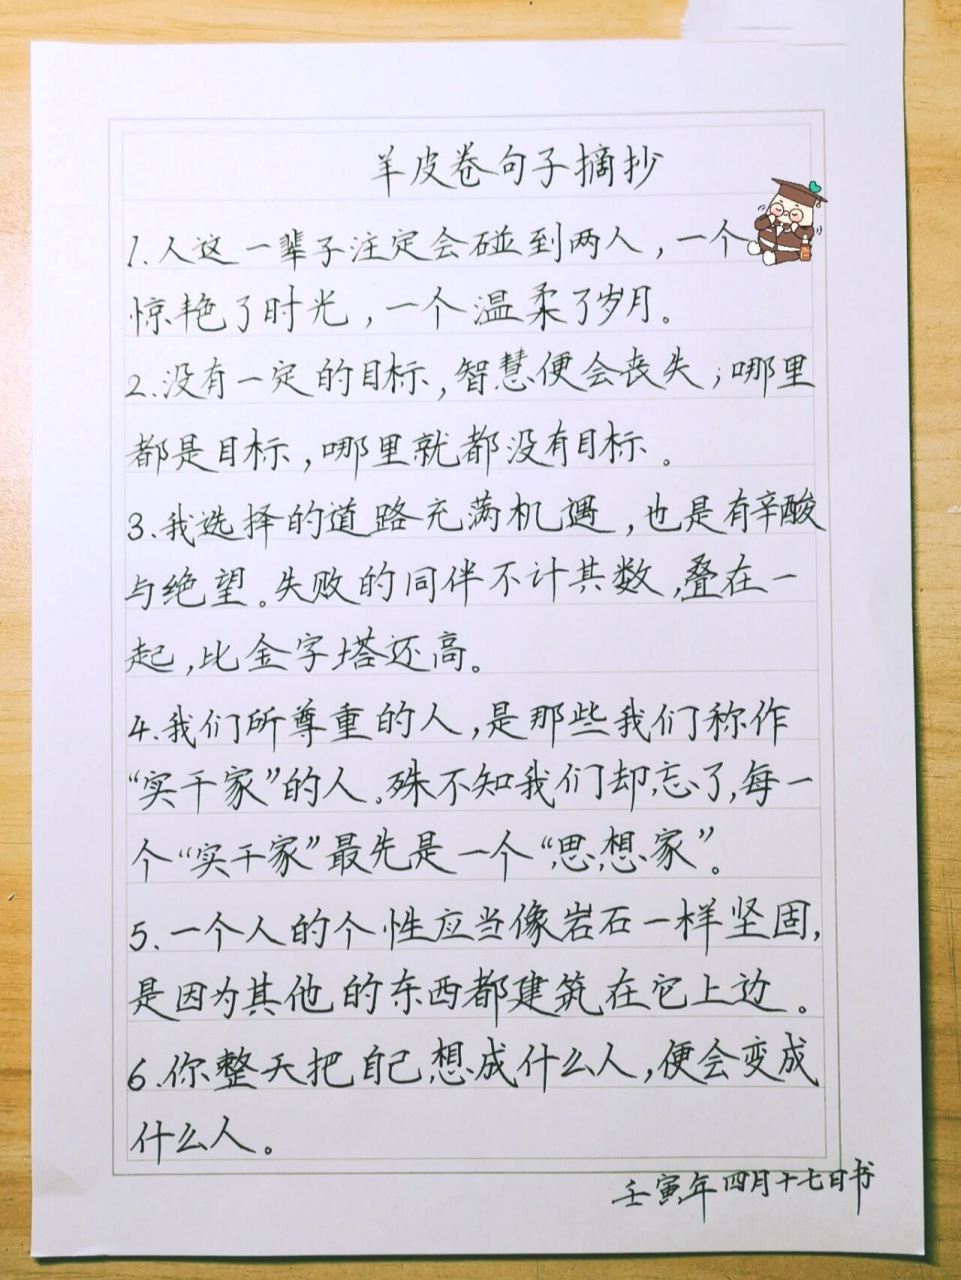 羊皮卷句子摘抄
1.人这一辈子注定会碰到两人，一个
惊艳了时光，一个温柔了岁月。
2.没有一定的目标，智慧便会丧失；哪里
都是目标，哪里就都没有目标。
3.我选择的道路充满机遇，也是有辛酸
与绝望。失败的同伴不计其数，叠在一
起，比金字塔还高。
4.我们所尊重的人，是那些我们称作
“实干家”的人。殊不知我们却忘了，每一
个“实干家”最先是一个“思想家”。
5.一个人的个性应当像岩石一样坚固，
是因为其他的东西都建筑在它上边。
6.你整天把自己想成什么人，便会变成
什么人。
壬寅年四月十七日书